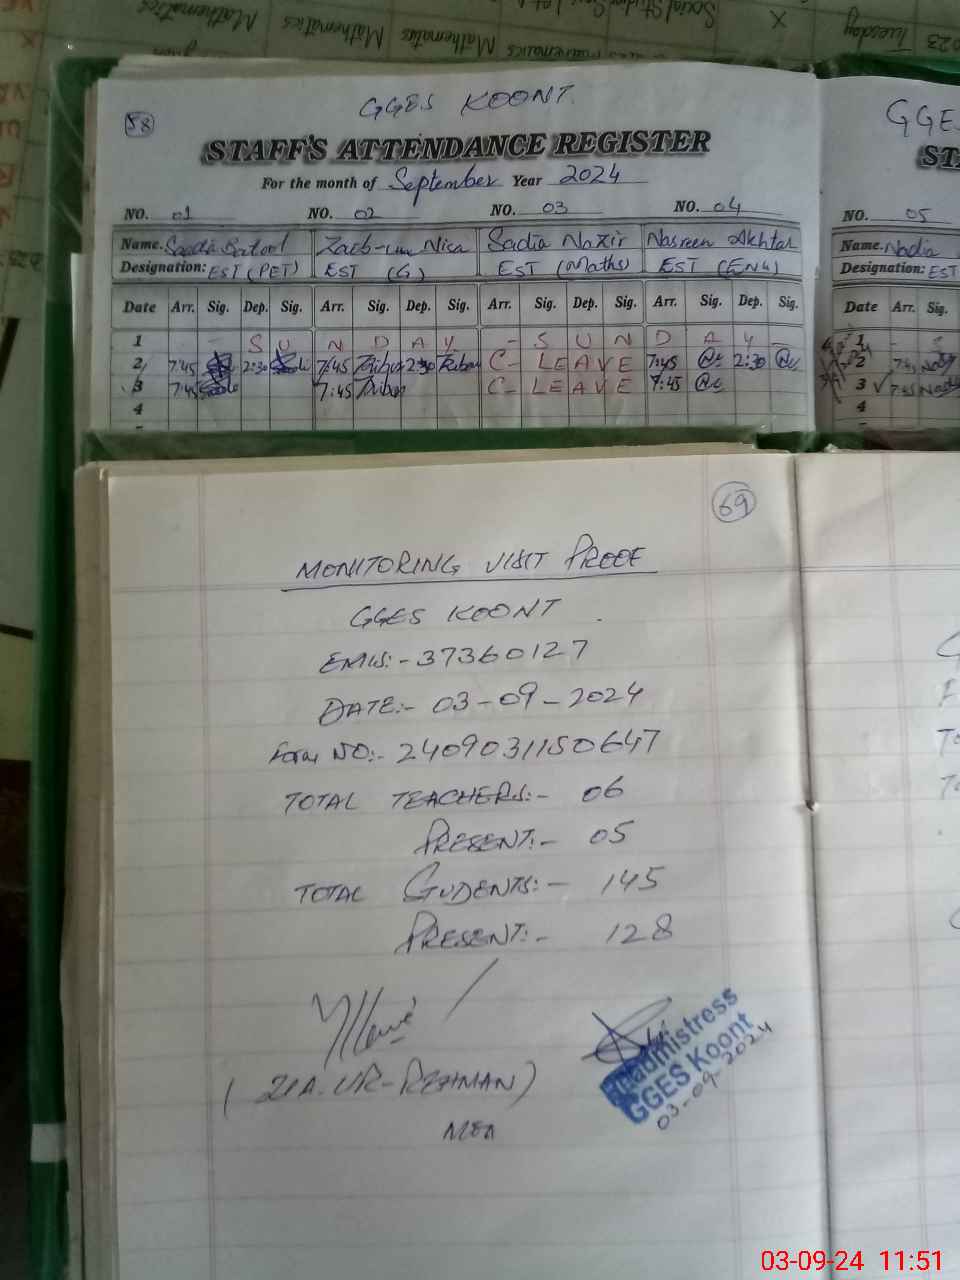 2023 Tuesday X Social Studies
Mathematics Mathematics Mathematics Mathematics
58
GGES KOONT
STAFF'S ATTENDANCE REGISTER
For the month of September Year 2024
NO. 01 NO. 02 NO. 03 NO. 04
Name. Saadia Batool Zaib-un Nisa Sadia Nazir Nasreen Akhtar
Designation: EST (PET) EST (G) EST (Maths) EST (Eng)
Date Arr. Sig. Dep. Sig. Arr. Sig. Dep. Sig. Arr. Sig. Dep. Sig. Arr. Sig. Dep. Sig.
1 - - S U N D A Y - S U N D A Y -
2 7:45 2:30 7:45 2:30 C- LEAVE 7:45 2:30
3 7:45 7:45 C- LEAVE 7:45
4
GGES
ST
NO. 05
Name. Nadia
Designation: EST
Date Arr. Sig.
1 - S
2 7:45
3 7:45
4
69
MONITORING VISIT PROOF
GGES KOONT
EMIS:- 37360127
DATE:- 03-09-2024
Form NO:- 2409031150647
TOTAL TEACHERS:- 06
PRESENT:- 05
TOTAL STUDENTS:- 145
PRESENT:- 128
(ZIA-UR-REHMAN)
MEA
Headmistress
GGES Koont
03-09-2024
03-09-24 11:51